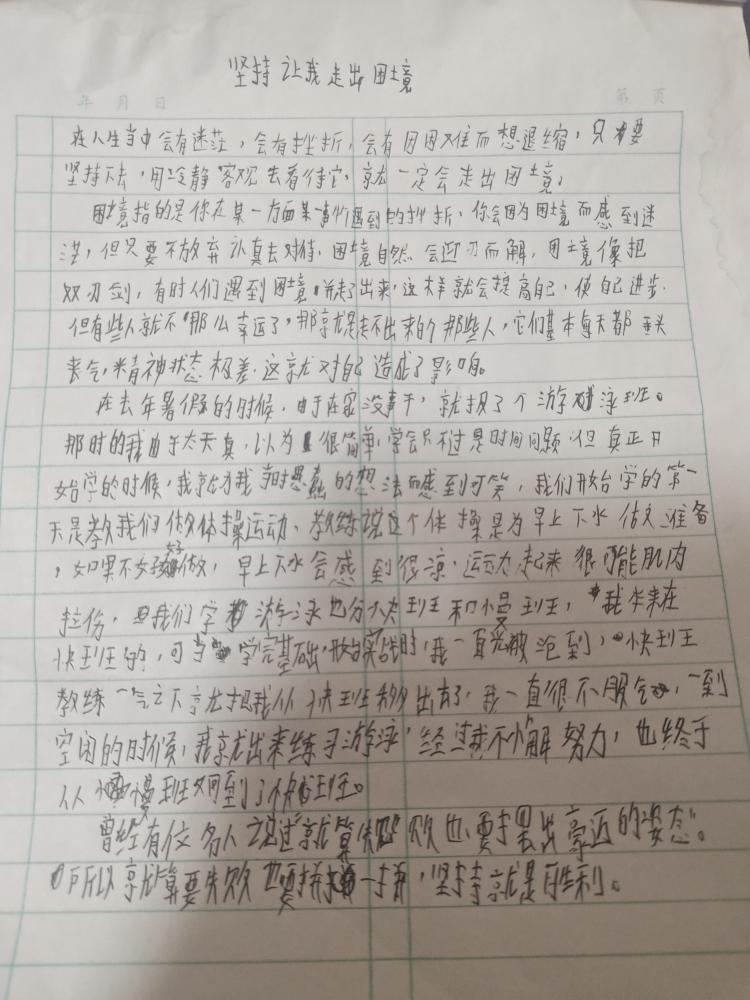 坚持让我走出困境
年 月 日 第 页
在人生当中会有迷茫，会有挫折，会有因困难而想退缩，只要
坚持下去，用冷静客观去看待它，就一定会走出困境。
困境指的是你在某一方面某一事情遇到的挫折，你会因为困境而感到迷
茫，但只要不放弃认真去对待，困境自然会迎刃而解，困境像把
双刃剑，有时人们遇到困境，并走了出来，这样就会提高自己，使自己进步.
但有些人就不"那么幸运了，那就是走不出来的那些人，它们基本每天都垂头
丧气，精神状态极差.这就对自己造成了影响。
在去年暑假的时候，由于在家没事干，就报了个游泳班。
那时的我由于太天真，以为很简单，学会只不过是时间问题.但真正开
始学的时候，我就为我当时愚蠢的想法而感到可笑，我们开始学的第一
天是教我们做体操运动、教练说这个体操是为早上下水做准备
，如果不好好做，早上下水会感到很凉，运动起来很可能肌肉
拉伤，且我们学游泳也分快班和慢班，我本来在
快班的，可当学完基础，开始实战时，我一直被呛到，快班
教练一气之下就把我从快班移出去了，我一直很不服气，一到
空闲的时候，我就出来练习游泳，经过我不懈努力，也终于
从慢班又回到了快班。
曾经有位名人说过"就算失败也要摆出豪迈的姿态"。
所以就算要失败也要拼一拼，坚持就是胜利。